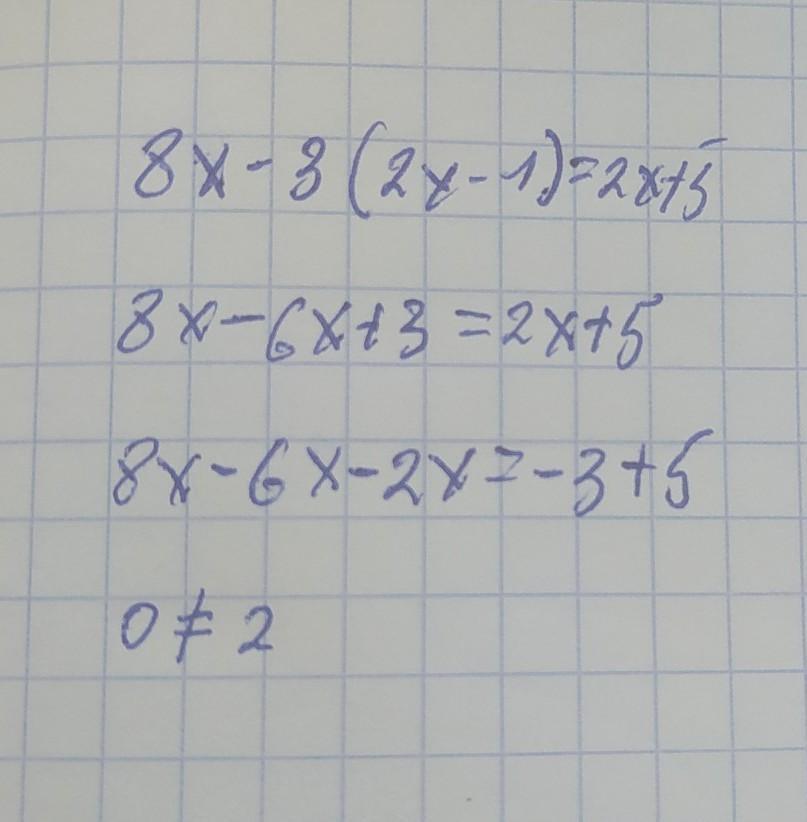 8x-3(2x-1)=2x+5
8x-6x+3=2x+5
8x-6x-2x=-3+5
0≠2